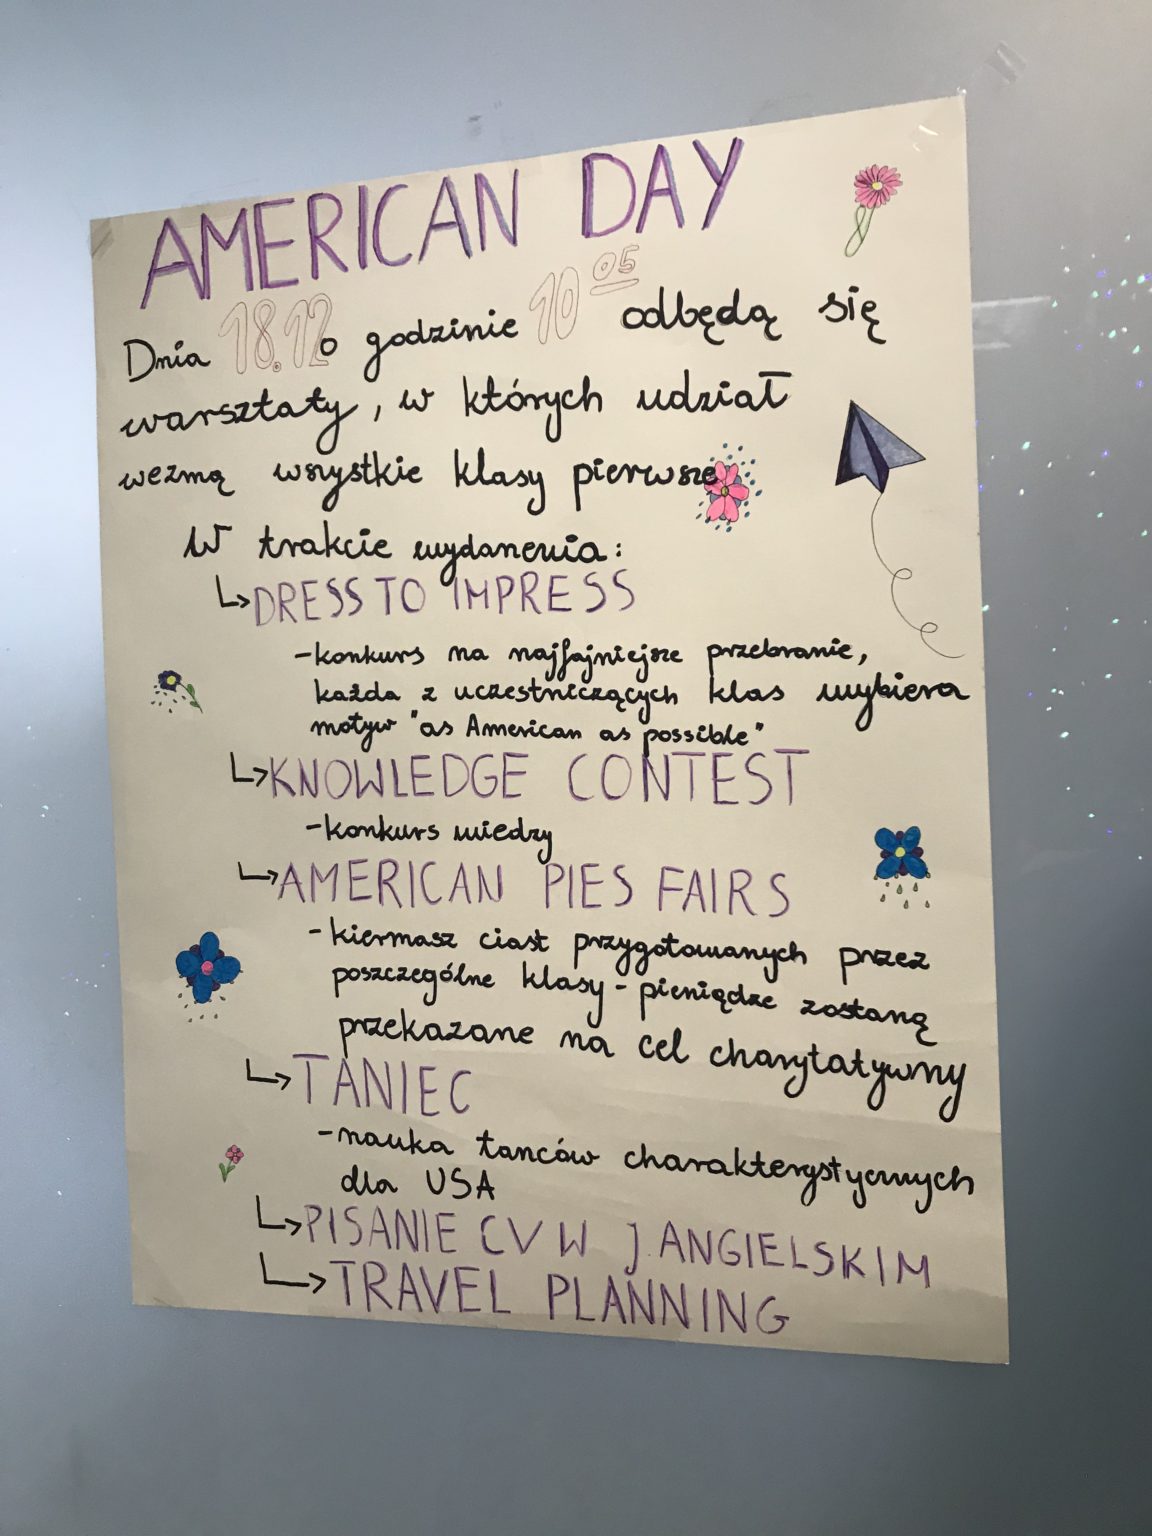 AMERICAN DAY
Dnia 18.12 o godzinie 10 05 odbędą się
warsztaty, w których udział
wezmą wszystkie klasy pierwsze
W trakcie wydarzenia:
↳ DRESS TO IMPRESS
-konkurs na najfajniejsze przebranie,
każda z uczestniczących klas wybiera
motyw "as American as possible"
↳ KNOWLEDGE CONTEST
-konkurs wiedzy
↳ AMERICAN PIES FAIRS
-kiermasz ciast przygotowanych przez
poszczególne klasy - pieniądze zostaną
przekazane na cel charytatywny
↳ TANIEC
-nauka tańców charakterystycznych
dla USA
↳ PISANIE CV W J. ANGIELSKIM
↳ TRAVEL PLANNING